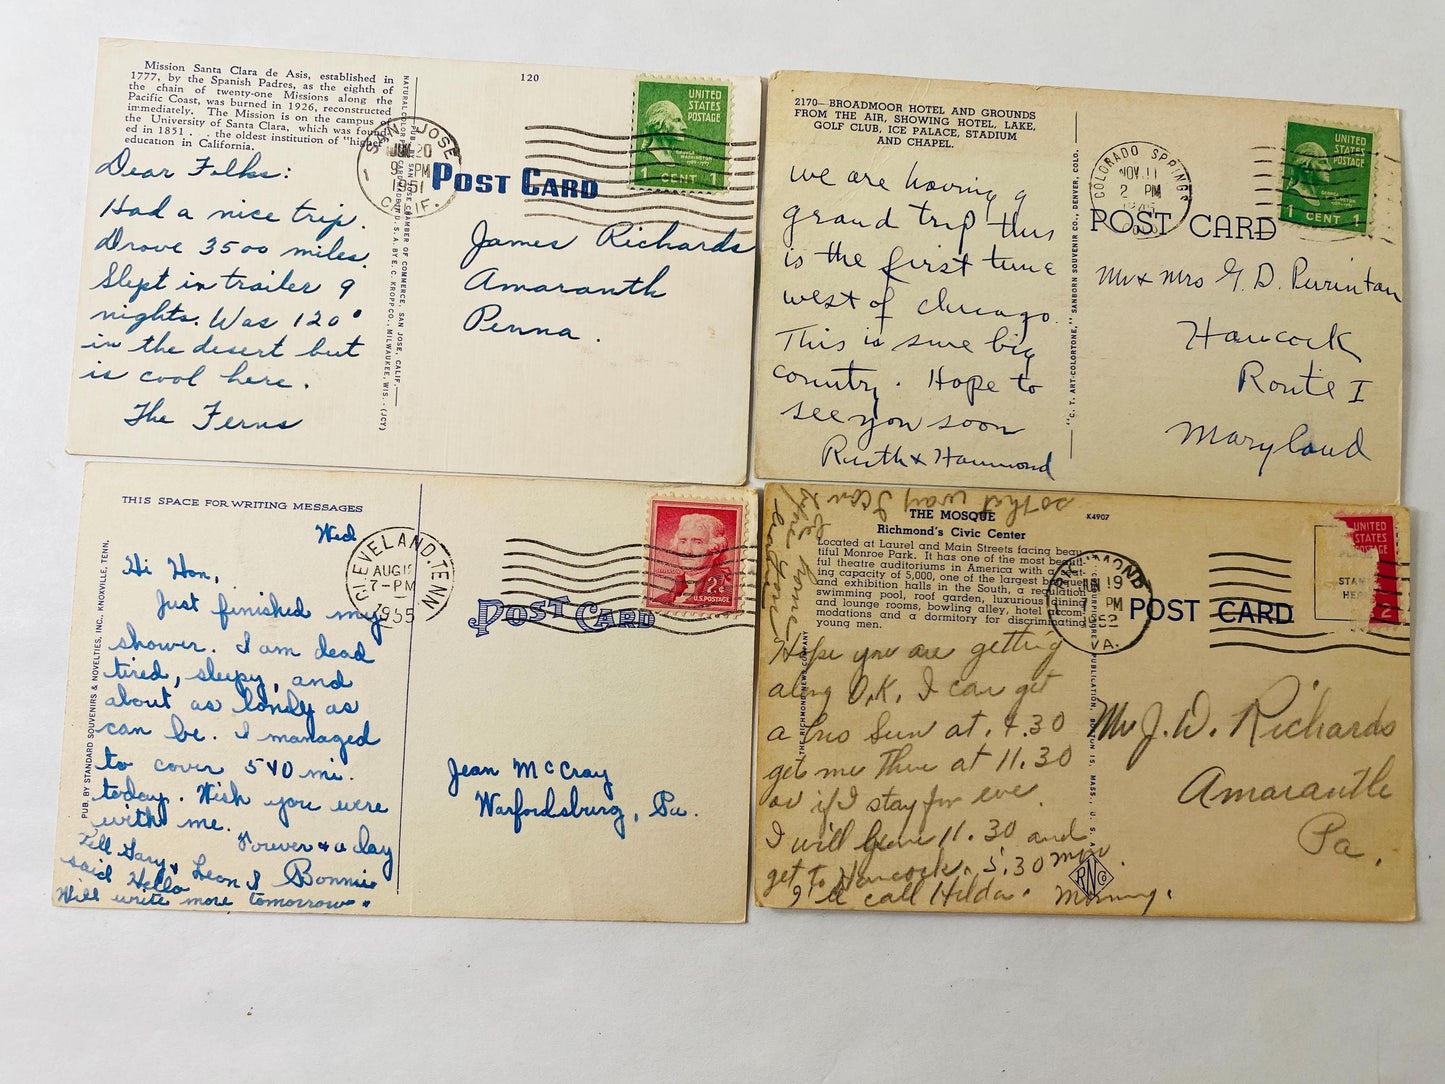 Mission Santa Clara de Asis, established in
1777, by the Spanish Padres, as the eighth of
the chain of twenty-one Missions along the
Pacific Coast, was burned in 1926, reconstructed
immediately. The Mission is on the campus of
the University of Santa Clara, which was found-
ed in 1851 . . . the oldest institution of "higher
education in California.
120
UNITED
STATES
POSTAGE
1 CENT 1
SAN JOSE
JUN 20
PM
1951
CALIF.
POST CARD
Dear Folks:
Had a nice trip.
Drove 3500 miles.
Slept in trailer 9
nights. Was 120°
in the desert but
is cool here.
The Ferns
James Richards
Amaranth
Penna.
2170—BROADMOOR HOTEL AND GROUNDS
FROM THE AIR, SHOWING HOTEL, LAKE,
GOLF CLUB, ICE PALACE, STADIUM
AND CHAPEL.
COLORADO SPRINGS
NOV 11
2 PM
COLO.
UNITED
STATES
POSTAGE
1 CENT 1
POST CARD
"C. T. ART-COLORTONE," SANBORN SOUVENIR CO., DENVER, COLO.
we are having a
grand trip this
is the first time
west of chicago.
This is sure big
country. Hope to
see you soon
Ruth & Hammond
Mr & Mrs G. D. Purintan
Hancock
Route 1
Maryland
THIS SPACE FOR WRITING MESSAGES
PUB. BY STANDARD SOUVENIRS & NOVELTIES, INC., KNOXVILLE, TENN.
CLEVELAND, TENN
AUG
7-PM
1955
2¢
U.S. POSTAGE
POST CARD
Wed
Hi Hon,
Just finished my
shower. I am dead
tired, sleepy, and
about as lonely as
can be. I managed
to cover 540 mi.
today. Wish you were
with me.
Forever & a day
Leon & Bonnie
Tell Gary
said Hello
Will write more tomorrow.
Jean McCray
Warfordsburg, Pa.
THE MOSQUE
K4907
Richmond's Civic Center
Located at Laurel and Main Streets facing beau-
tiful Monroe Park. It has one of the most beauti-
ful theatre auditoriums in America with a seat-
ing capacity of 5,000, one of the largest banquet
and exhibition halls in the South, a regulation
swimming pool, roof garden, luxurious dining
and lounge rooms, bowling alley, hotel accom-
modations and a dormitory for discriminating
young men.
RICHMOND
JUN 19
7 PM
1952
VA.
UNITED
STATES
POSTAGE
2
POST CARD
THE RICHMOND NEWS COMPANY
so that way I can
be home
before
Hope you are getting
along O.K. I can get
a bus Sun at 4.30
get me There at 11.30
or if I stay for eve.
I will leave 11.30 and
get to Hancock. 5.30 mon
I'll call Hilda.
RNCo
Mr J. W. Richards
Amaranth
Pa.